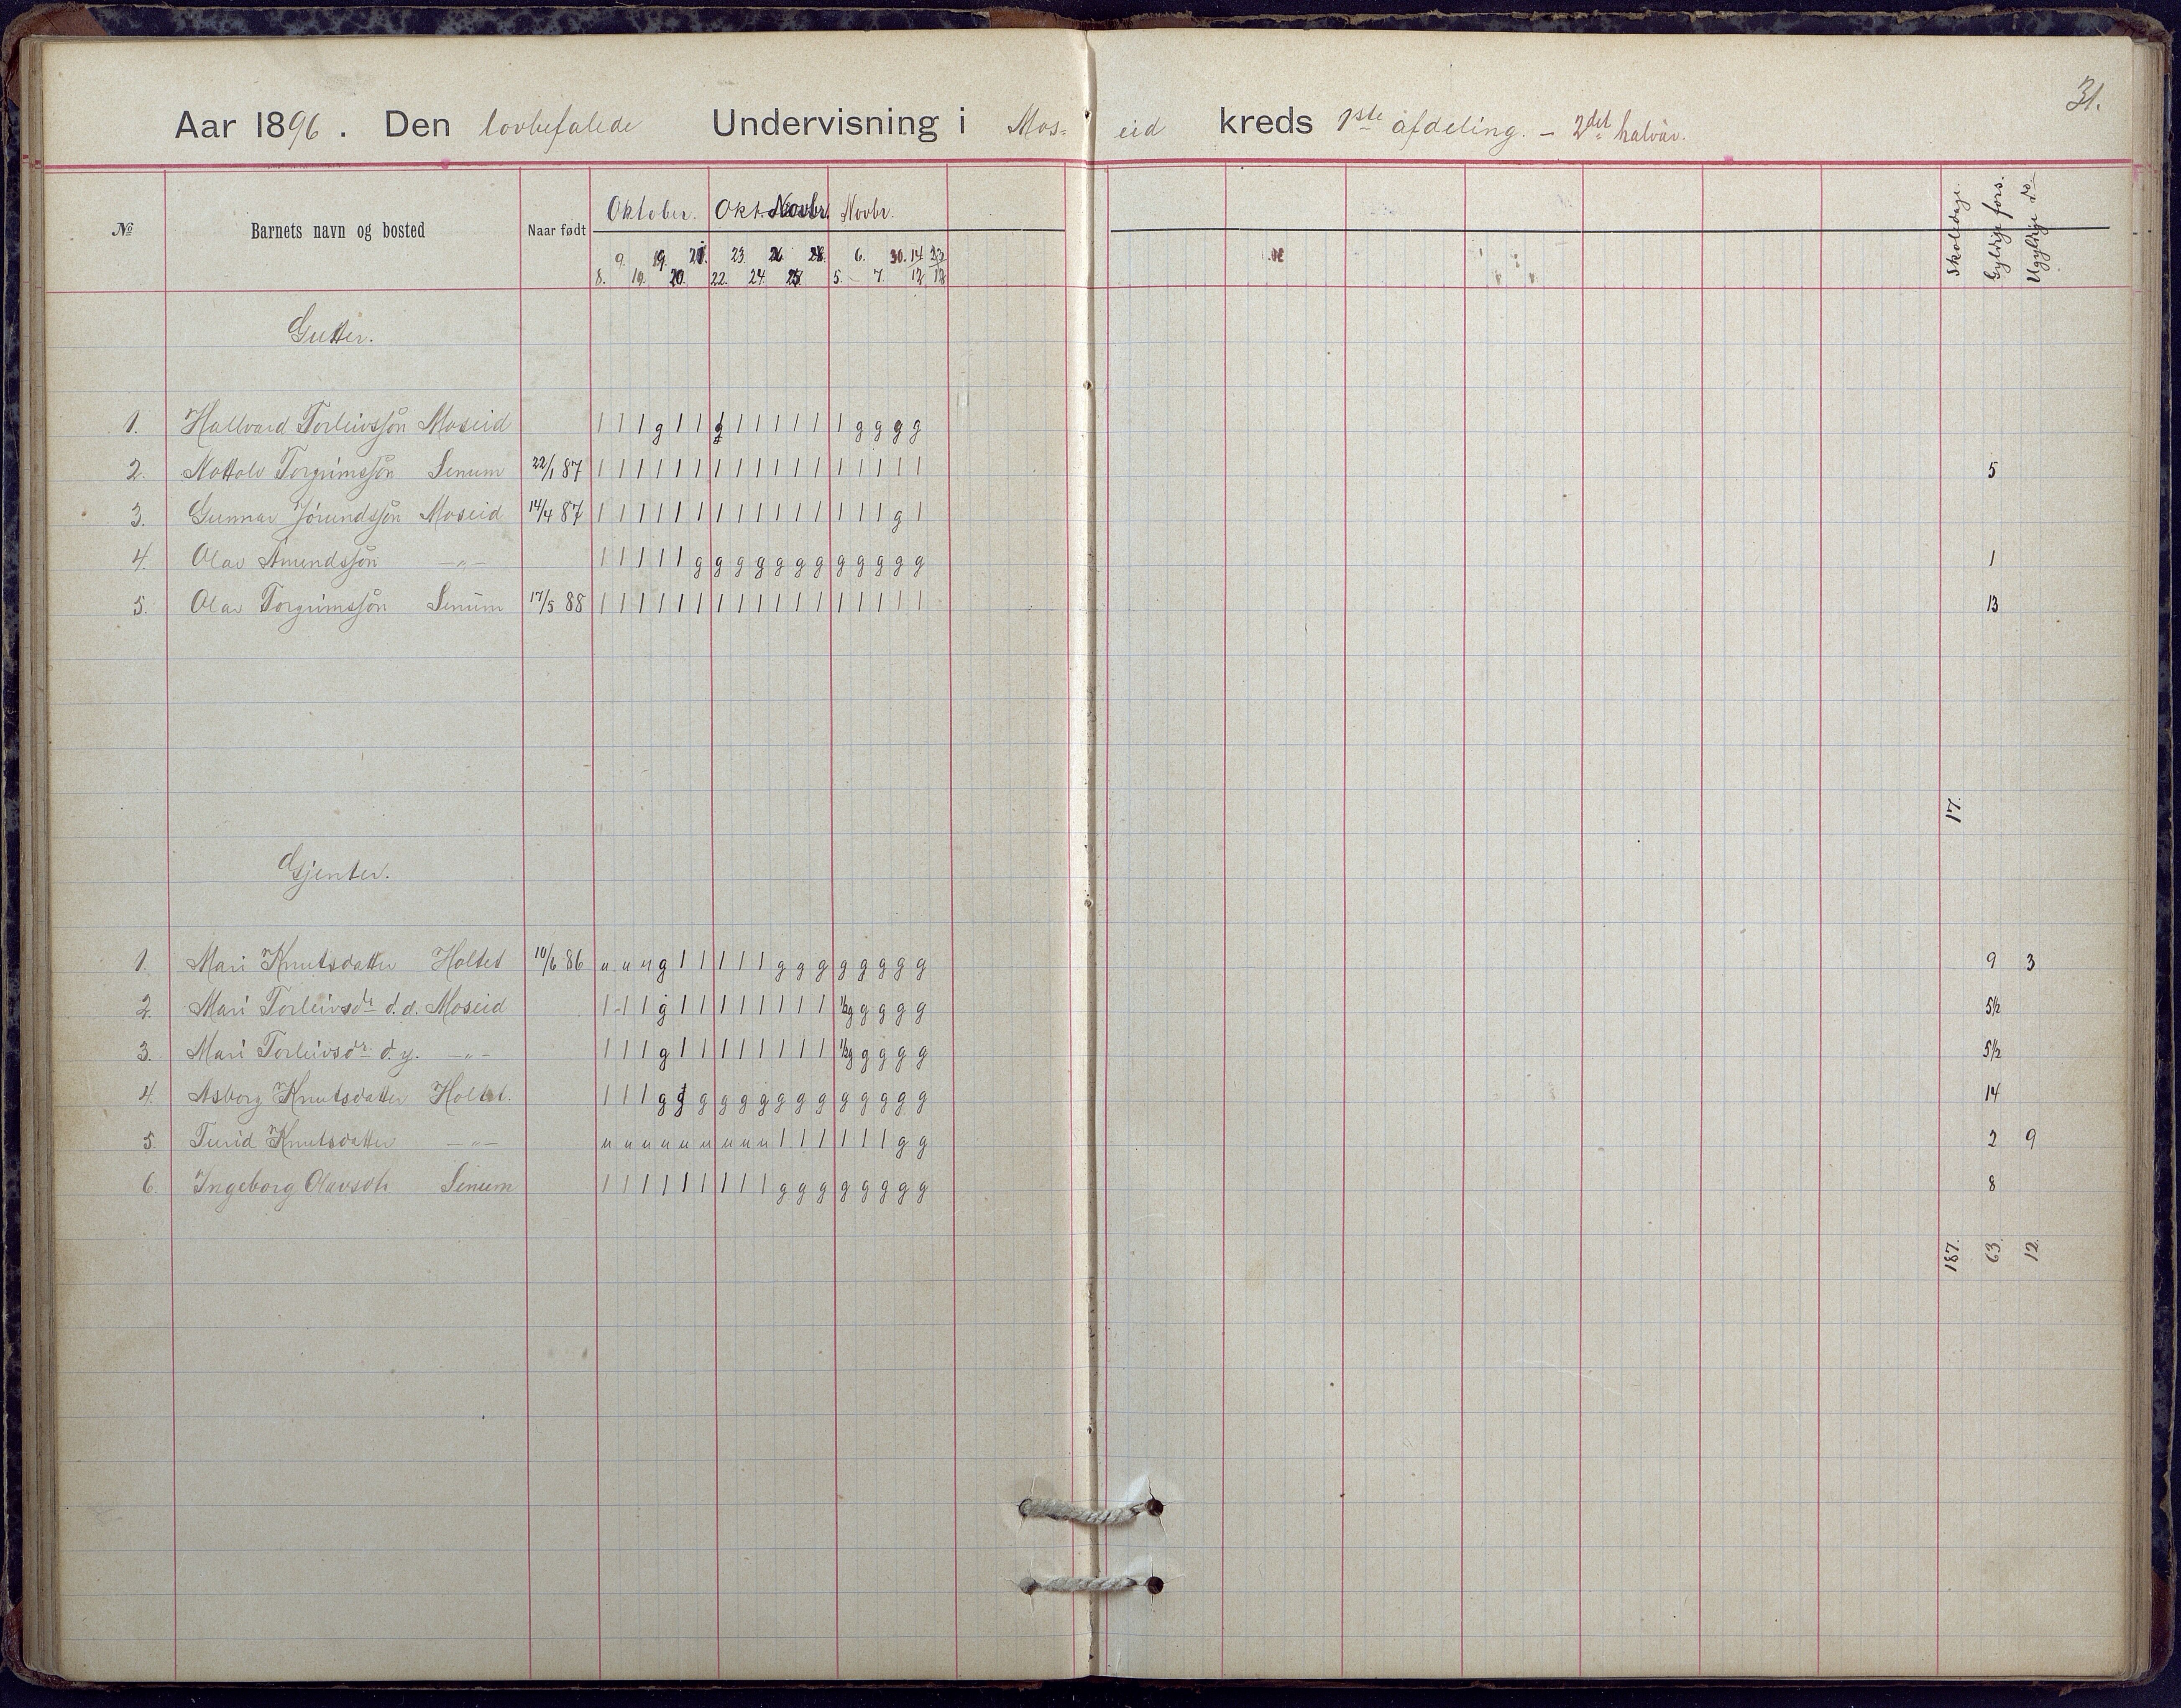 31.
Aar 1896. Den lovbefalede Undervisning i Mos- eid kreds 1ste afdeling. - 2det halvår.
№ Barnets navn og bosted Naar født Oktober. Okt Novbr. Skoledage. Gyldige fors. Ugyldige do.
9. 19. 21. 23. 26. 28. 6. 30. 14 23
8. 19. 20. 22. 24. 25. 5. 7. 12 12
Gutter.
1. Hallvard Torleivssön Moseid 1 1 1 g 1 1 g 1 1 1 1 1 1 g g g g
2. Nottolv Torgrimssön Senum 22/1 87 1 1 1 1 1 1 1 1 1 1 1 1 1 1 1 1 1 5
3. Gunnar Jörundssön Moseid 14/4 87 1 1 1 1 1 1 1 1 1 1 1 1 1 1 1 g 1
4. Olav Amundssön -"- 1 1 1 1 1 g g g g g g g g g g g g 1
5. Olav Torgrimssön Senum 17/5 88 1 1 1 1 1 1 1 1 1 1 1 1 1 1 1 1 1 13
17.
Gjenter.
1. Mari Knutsdatter Holtet 10/6 86 u u u g 1 1 1 1 1 g g g g g g g g 9 3
2. Mari Torleivsdr d.d. Moseid 1 1 1 g 1 1 1 1 1 1 1 1 ½g g g g g 5½
3. Mari Torleivsdr d.y. -"- 1 1 1 g 1 1 1 1 1 1 1 1 ½g g g g g 5½
4. Asborg Knutsdatter Holtet. 1 1 1 g g g g g g g g g g g g g g 14
5. Turid Knutsdatter -"- u u u u u u u u u 1 1 1 1 1 1 g g 2 9
6. Ingeborg Olavsdtr Senum 1 1 1 1 1 1 1 1 1 g g g g g g g g 8
187. 63. 12.